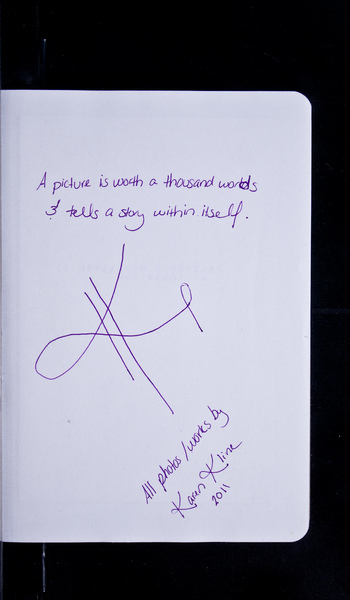 A picture is worth a thousand words
& tells a story within itself.
All photos/works by
Karen Kline
2011